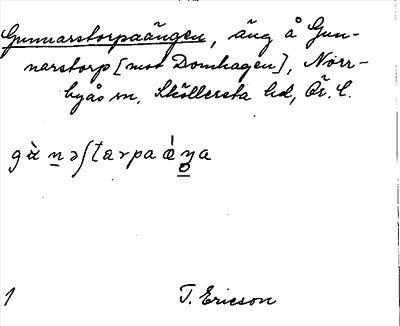 Gunnarstorpaängen, äng å Gun-
narstorp [mot Domhagen], Norr-
byås sn, Sköllersta hd, Ör. l.
gὰn̲əʃtarpaǽŋ̲a
1 T. Ericson